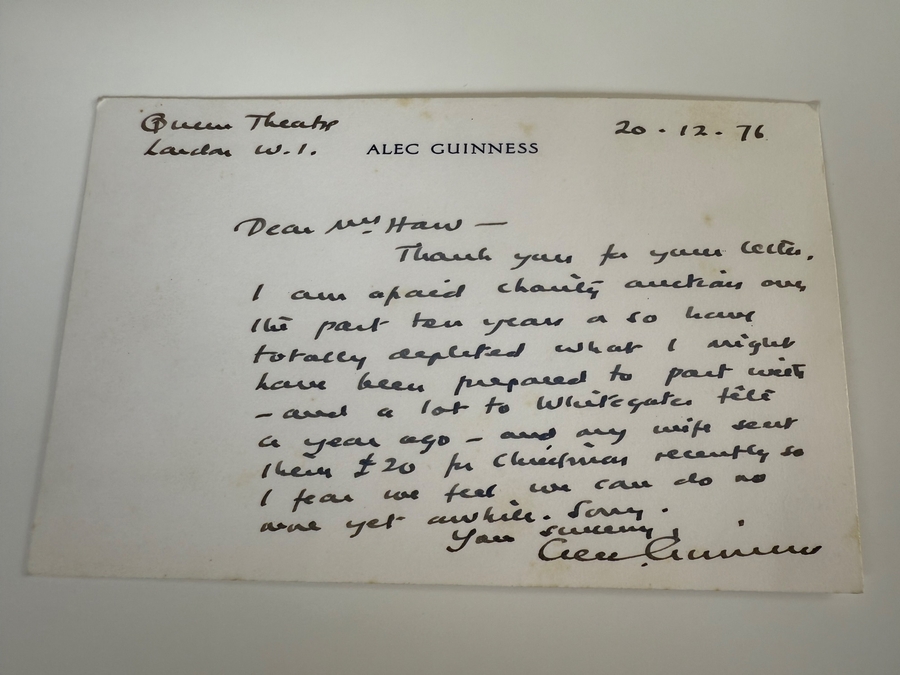 Queens Theatre
London W.1.
ALEC GUINNESS
20 · 12 · 76
Dear Mrs Haw —
Thank you for your letter.
I am afraid charity auctions over
the past ten years or so have
totally depleted what I might
have been prepared to part with
– and a lot to Whitegates fête
a year ago – and my wife sent
them £20 for Christmas recently so
I fear we feel we can do no
more yet awhile. Sorry.
Yours sincerely,
Alec Guinness